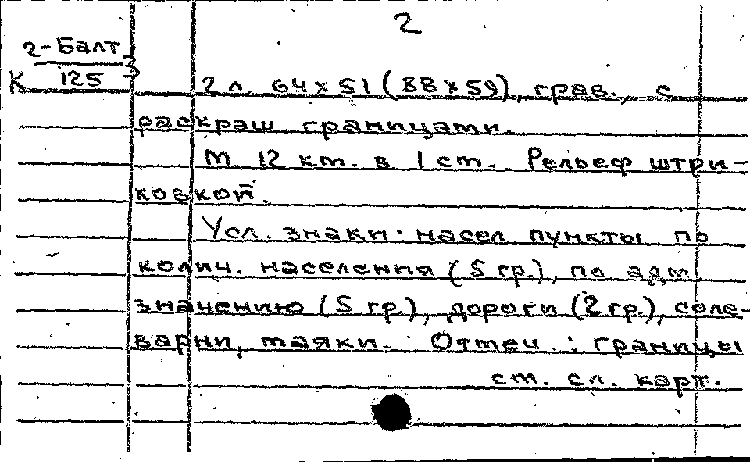 2
2-Балт
К 125 3
2 л. 64×51 (88×59), грав., с
раскраш границами.
М 12 км. в 1 ст. Рельеф штри-
ховкой.
Усл. знаки: насел пункты по
колич. населения (5 гр.), по адм.
значению (5 гр.), дороги (2 гр.), соле-
варни, маяки. Отмеч.: границы
см. сл. карт.